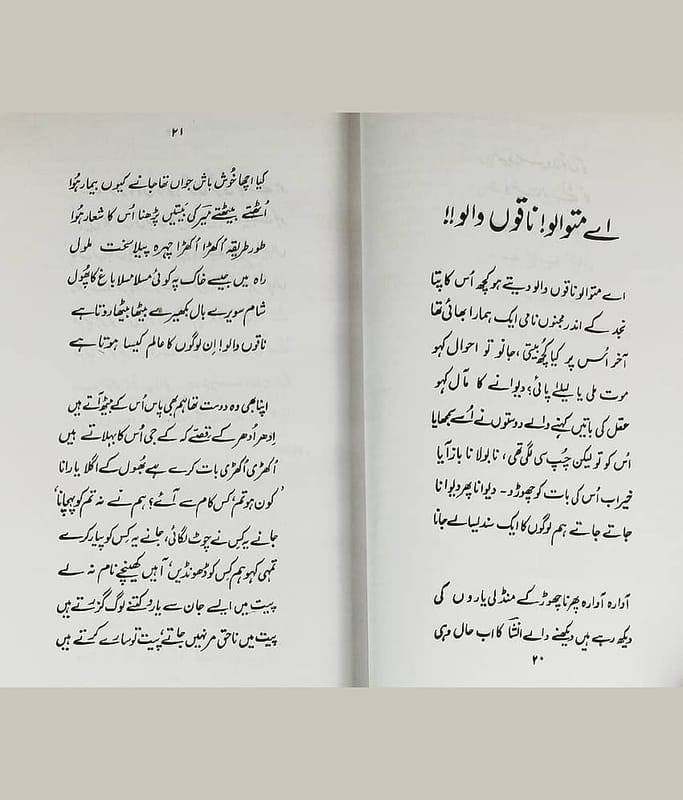 اے متوالو! ناقوں والو!!
اے متوالو ناقوں والو دیتے ہو کچھ اُس کا پتا
نجد کے اندر مجنوں نامی ایک ہمارا بھائی تھا
آخر اُس پر کیا کچھ بیتی، جانو تو احوال کہو
موت ملی یا لیلےٰ پائی؟ دیوانے کا مآل کہو
عقل کی باتیں کہنے والے دوستوں نے اُسے سمجھایا
اس کو تو لیکن چپ سی لگی تھی، نا بولا نا باز آیا
خیر اب اُس کی بات کو چھوڑو۔ دیوانا پھر دیوانا
جاتے جاتے ہم لوگوں کا ایک سندیسا لے جانا
آوارہ آوارہ پھرنا چھوڑ کے منڈلی یاروں کی
دیکھ رہے ہیں دیکھنے والے انشاؔ کا اب حال وہی
۲۰
۲۱
کیا اچھا خُوش باش جواں تھا جانے کیوں بیمار ہُوا
اُٹھتے بیٹھتے میرؔ کی بَیتیں پڑھنا اُس کا شعار ہُوا
طور طریقہ اُکھڑا اُکھڑا چہرہ پیلا سخت ملول
راہ میں جیسے خاک پہ کوئی مسلا مسلا باغ کا پھُول
شام سویرے بال بکھیرے بیٹھا بیٹھا روتا ہے
ناقوں والو! اِن لوگوں کا عالم کیسا ہوتا ہے
اپنا بھی وہ دوست تھا ہم بھی پاس اُس کے بیٹھ آتے ہیں
اِدھر اُدھر کے قصے کہہ کے جی اُس کا بہلاتے ہیں
اُکھڑی اُکھڑی بات کرے ہے بھُول کے اگلا یارانا
'کون ہو تم، کس کام سے آئے؟ ہم نے نہ تم کو پہچانا'
جانے یہ کس نے چوٹ لگائی، جانے یہ کِس کو پیار کرے
تمہی کہو ہم کِس کو ڈھونڈیں، آہیں کھینچے نام نہ لے
پیت میں ایسے جان سے یارو کتنے لوگ گزرتے ہیں
پیت میں ناحق مر نہیں جاتے، پیت تو سارے کرتے ہیں